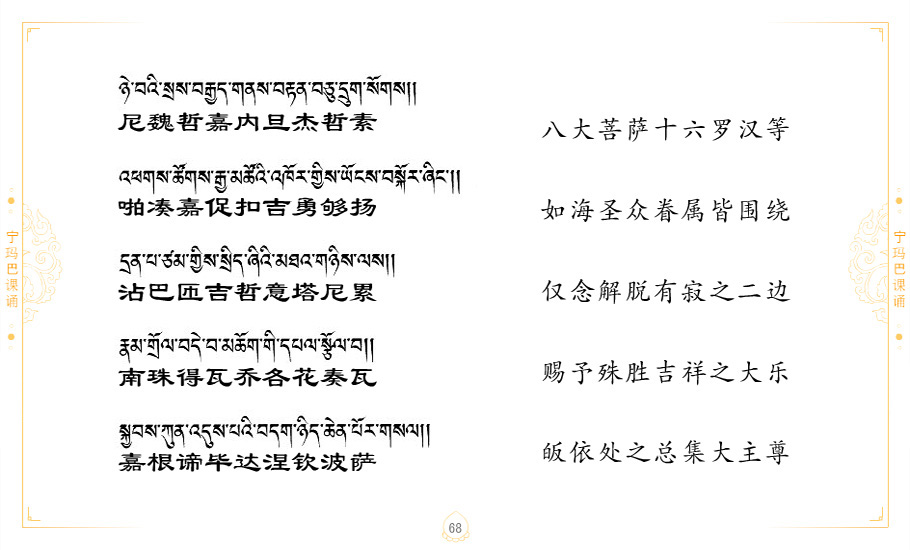 ཉེ་བའི་སྲས་བརྒྱད་གནས་བརྟན་བཅུ་དྲུག་སོགས།།
尼魏哲嘉内旦杰哲素
八大菩萨十六罗汉等
འཕགས་ཚོགས་རྒྱ་མཚོའི་འཁོར་གྱིས་ཡོངས་བསྐོར་ཞིང་།།
啪凑嘉促扣吉勇够扬
如海圣众眷属皆围绕
དྲན་པ་ཙམ་གྱིས་སྲིད་ཞིའི་མཐའ་གཉིས་ལས།།
沾巴匝吉哲意塔尼累
仅念解脱有寂之二边
རྣམ་གྲོལ་བདེ་བ་མཆོག་གི་དཔལ་སྩོལ་བ།།
南珠得瓦乔各花奏瓦
赐予殊胜吉祥之大乐
སྐྱབས་ཀུན་འདུས་པའི་བདག་ཉིད་ཆེན་པོར་གསལ།།
嘉根谛毕达涅钦波萨
皈依处之总集大主尊
宁玛巴课诵
宁玛巴课诵
68